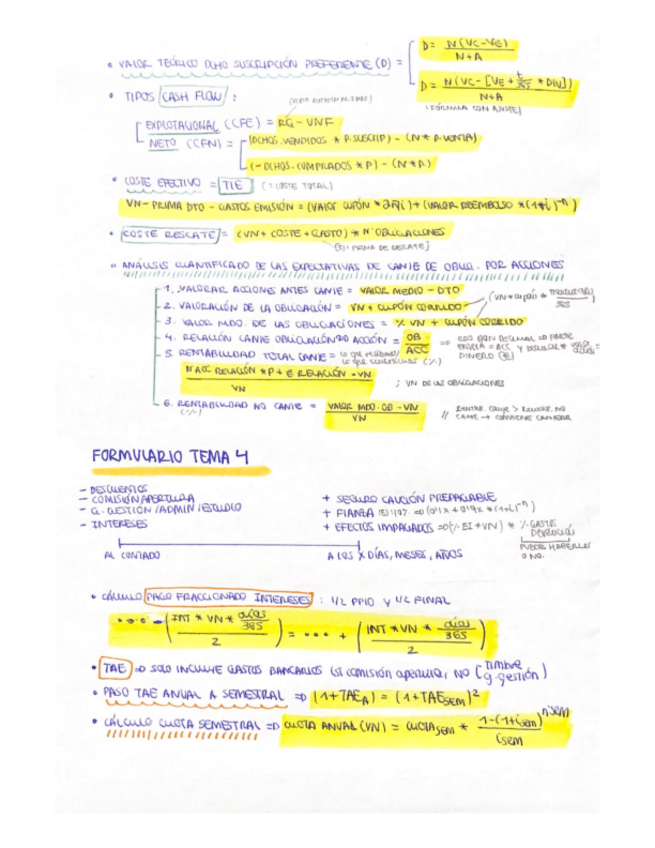 • VALOR TEÓRICO DCHO SUSCRIPCIÓN PREFERENTE (D) =
D = N(VC-VE) / N+A
D = N(VC-[VE + t/365 * DIV]) / N+A
(FÓRMULA CON AJUSTE)
• TIPOS CASH FLOW :
EXPLOTACIONAL (CFE) = RG - VNF
NETO (CFN) =
(DCHOS. VENDIDOS * P.SUSCRIP) - (N * P.VENTA)
(- DCHOS. COMPRADOS * P) - (N * P.)
• COSTE EFECTIVO = TIE (= COSTE TOTAL)
VN - PRIMA DTO - GASTOS EMISIÓN = (VALOR CUPÓN * a n¬i) + (VALOR REEMBOLSO * (1+i)^-n)
• COSTE RESCATE = (VN + COSTE + GASTO) * Nº OBLIGACIONES
[SI: PRIMA DE RESCATE]
• ANÁLISIS CUANTIFICADO DE LAS EXPECTATIVAS DE CANJE DE OBLIG. POR ACCIONES
1. VALORAR ACCIONES ANTES CANJE = VALOR MEDIO - DTO
2. VALORACIÓN DE LA OBLIGACIÓN = VN + CUPÓN CORRIDO
3. VALOR MDO. DE LAS OBLIGACIONES = % VN + CUPÓN CORRIDO
4. RELACIÓN CANJE OBLIGACIÓN ACCIÓN = OB / ACC
5. RENTABILIDAD TOTAL CANJE =
Nº ACC RELACIÓN * P + E RELACIÓN - VN / VN
; VN DE LAS OBLIGACIONES
6. RENTABILIDAD NO CANJE = VALOR MDO. OB - VN / VN
(%)
// RENTAB. CANJE > RENTAB. NO
CANJE → CONVIENE CANJEAR
FORMULARIO TEMA 4
- DESCUENTOS
- COMISIÓN APERTURA
- G. GESTIÓN / ADMIN / ESTUDIO
- INTERESES
+ SEGURO CAUCIÓN PREPAGABLE
+ EFECTOS IMPAGADOS ⇒ (% EI * VN) * % GASTOS DEVOLUCIÓN
PUEDE HABERLOS
O NO.
AL CONTADO
A LOS X DÍAS, MESES, AÑOS
• CÁLCULO PAGO FRACCIONADO INTERESES : 1/2 PPIO Y 1/2 FINAL
••• - (INT * VN * días/365 / 2) = ••• + (INT * VN * días/365 / 2)
• TAE ⇒ SOLO INCLUYE GASTOS BANCARIOS (SI comisión apertura, NO [timbre
g.gestión)
• PASO TAE ANUAL A SEMESTRAL ⇒ (1+TAE_A) = (1+TAE_SEM)²
• CÁLCULO CUOTA SEMESTRAL ⇒ CUOTA ANUAL (VN) = CUOTA_SEM * 1-(1+i_sem)^n sem / i_sem